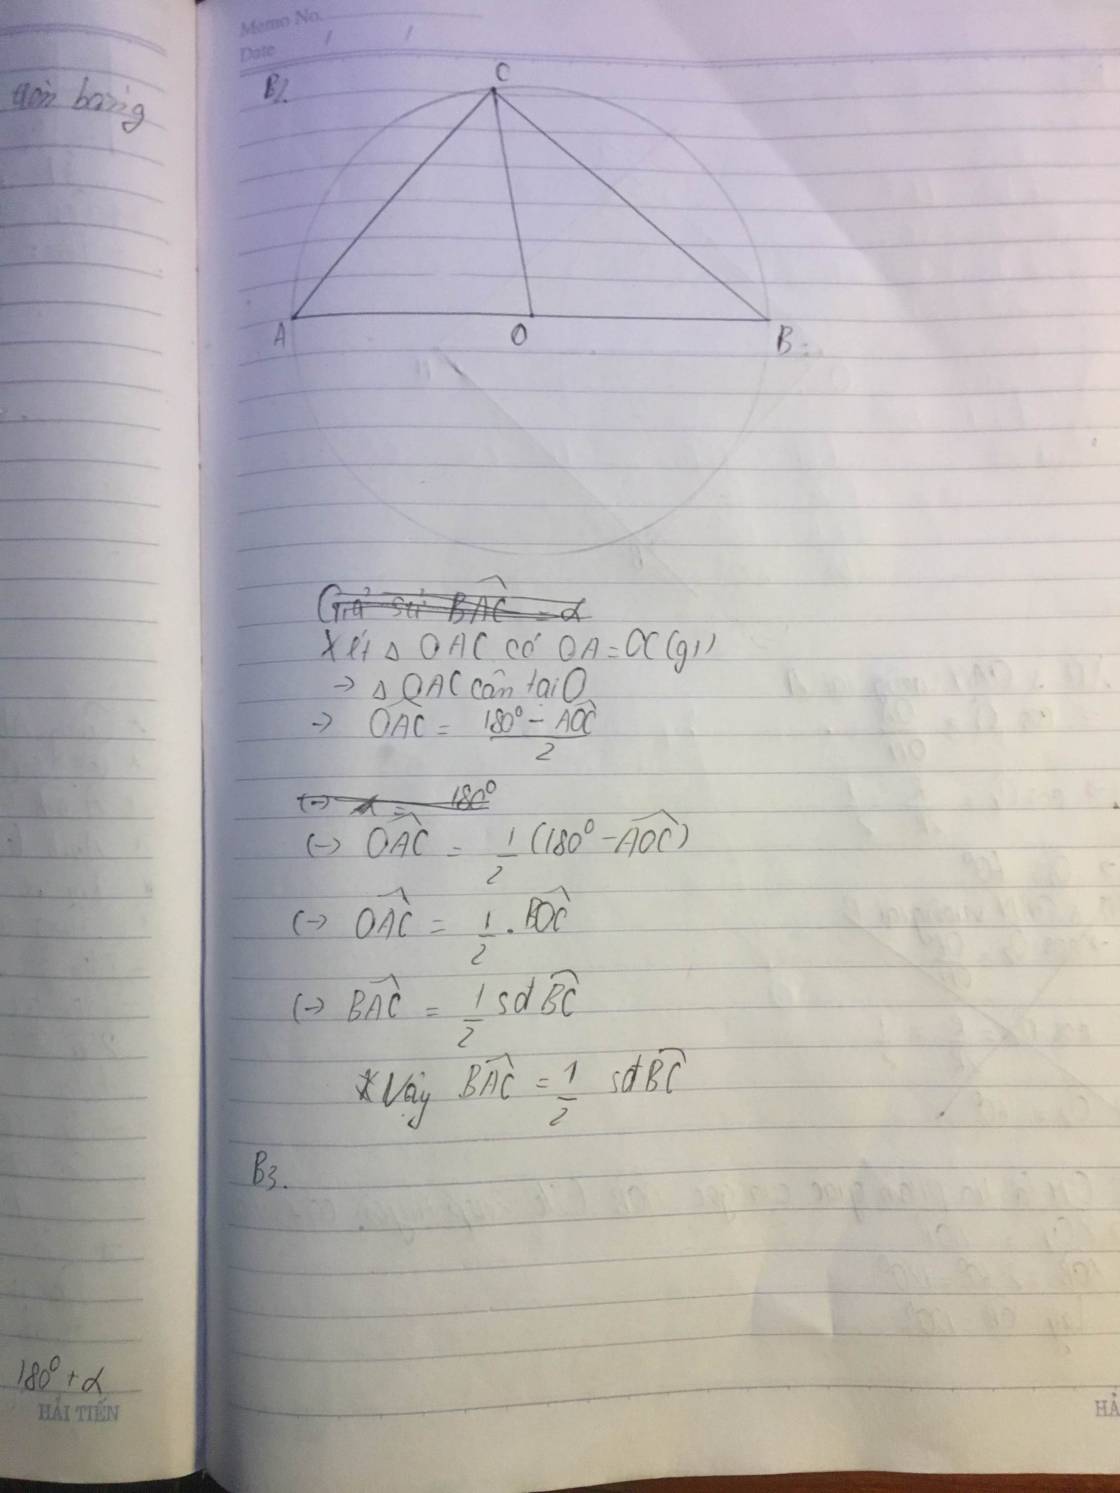 Memo No.
Date / /
bằng
B2.
C
A
O
B
Giả sử BAC = α
Xét △ OAC có OA = OC (gt)
→ △ OAC cân tại O
→ OAC = 180° - AOC / 2
(→ α = 180°
(→ OAC = 1/2 (180° - AOC)
(→ OAC = 1/2 . BOC
(→ BAC = 1/2 sđ BC
* Vậy BAC = 1/2 sđ BC
B3.
180° + α
HẢI TIẾN
HẢ